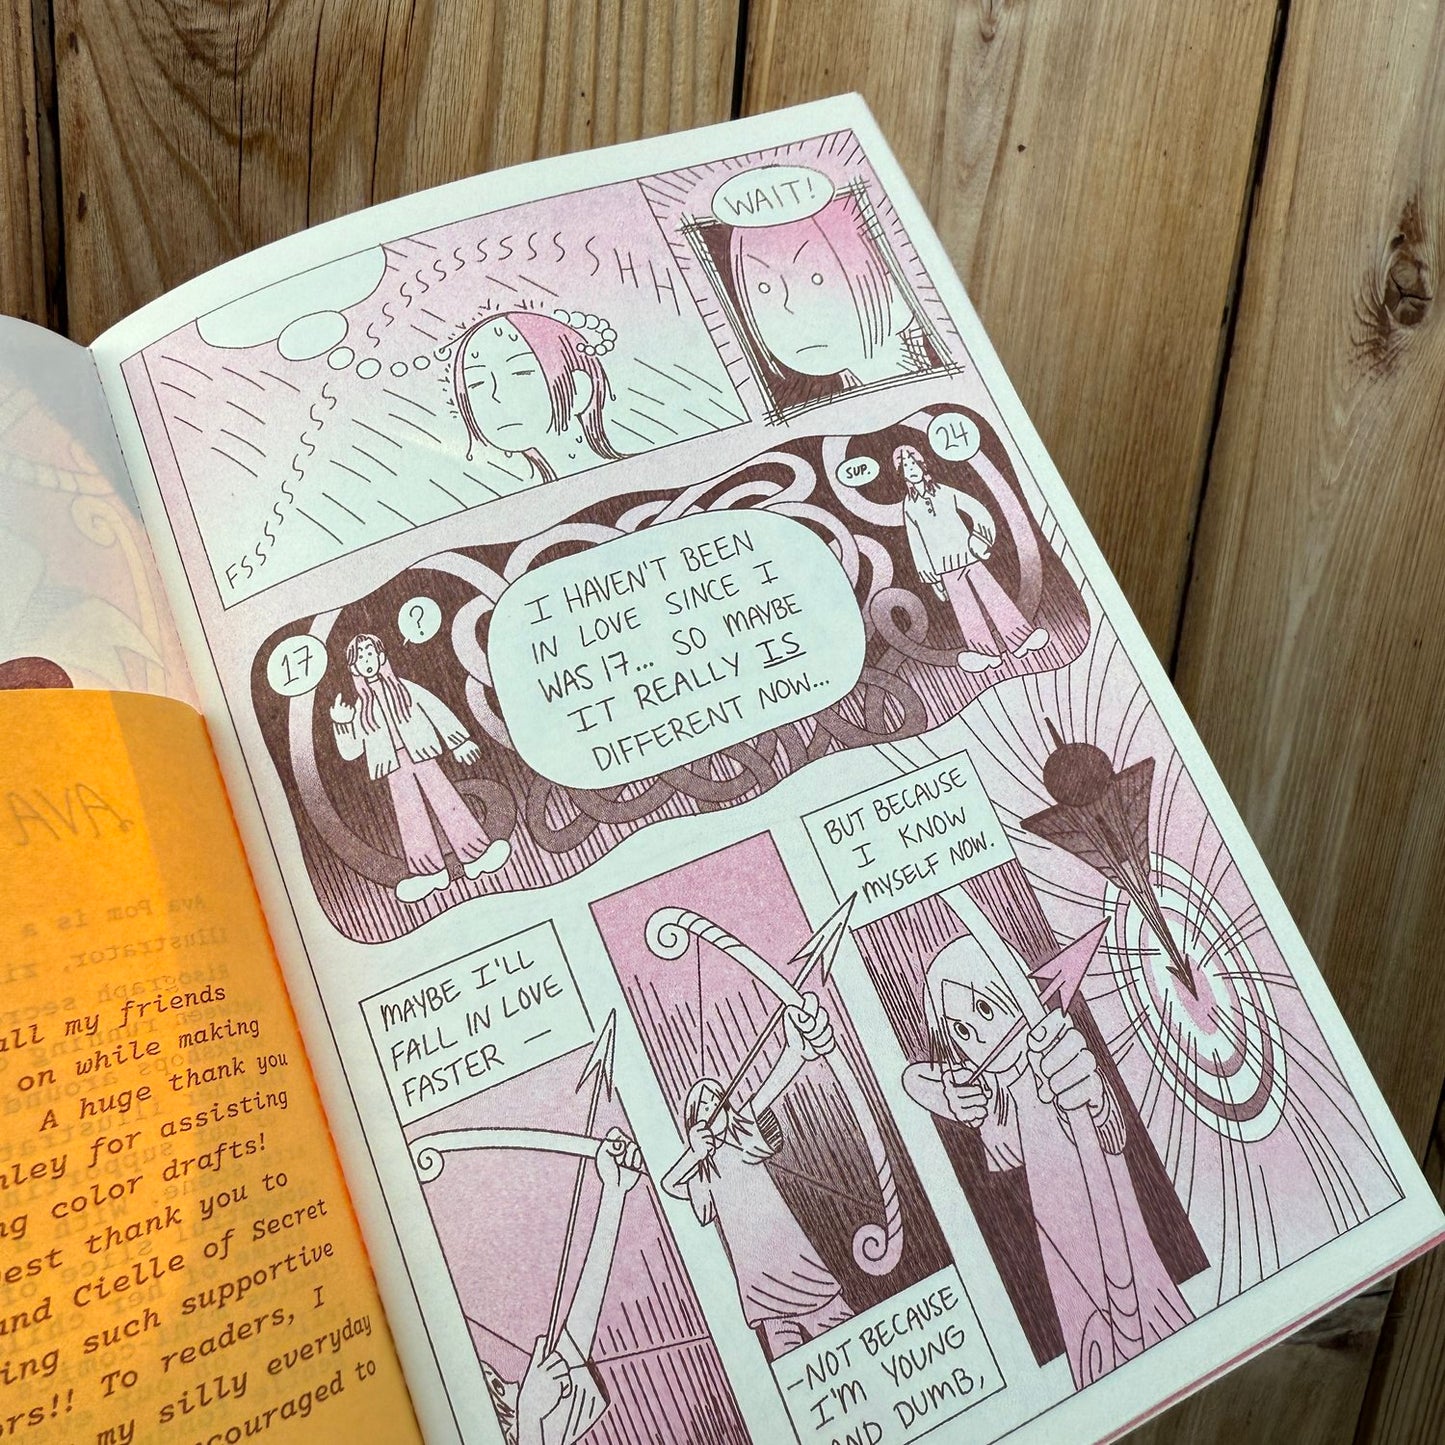 FSSSSSSSSSSSSSSSSSSSSSSSSSHHH
WAIT!
17
?
I HAVEN'T BEEN
IN LOVE SINCE I
WAS 17... SO MAYBE
IT REALLY IS
DIFFERENT NOW...
SUP.
24
MAYBE I'LL
FALL IN LOVE
FASTER —
—NOT BECAUSE
I'M YOUNG
AND DUMB,
BUT BECAUSE
I KNOW
MYSELF NOW.
AVA
Ava Pom is a
all my friends
on while making
A huge thank you
for assisting
color drafts!
thank you to
and Cielle of Secret
such supportive
To readers, I
my silly everyday
to